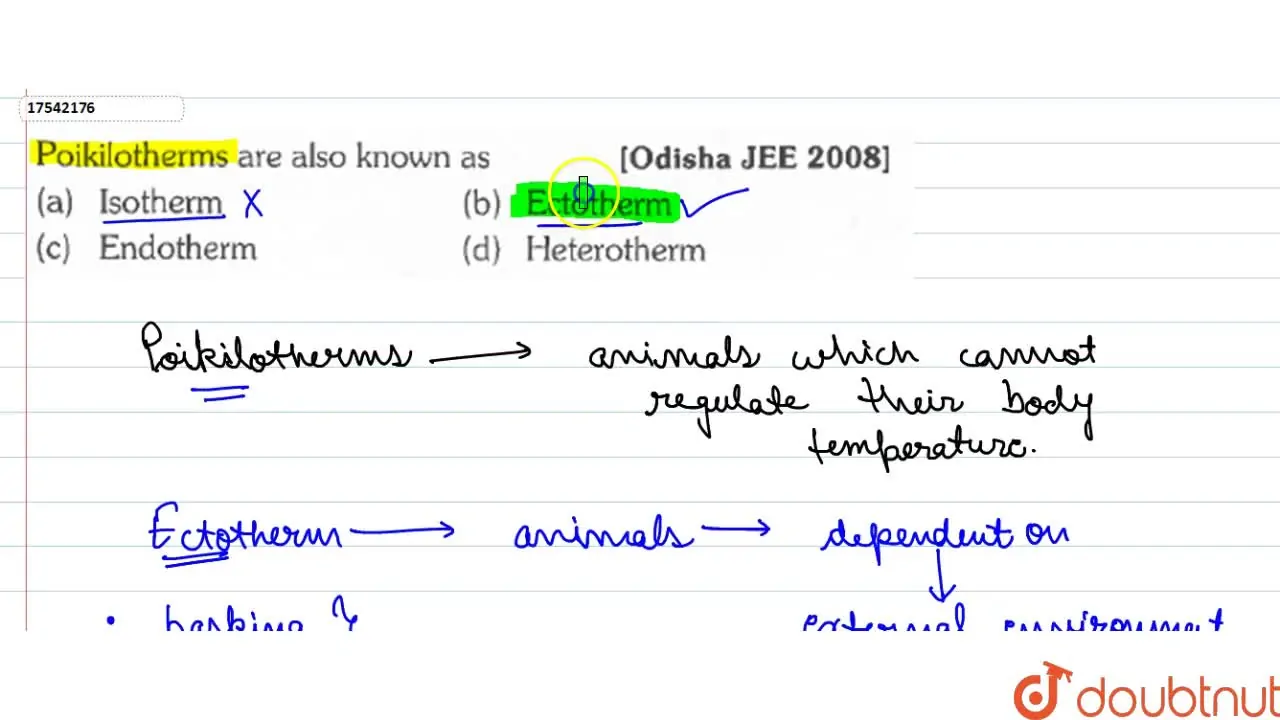 17542176
Poikilotherms are also known as [Odisha JEE 2008]
(a) Isotherm X (b) Ectotherm ✓
(c) Endotherm (d) Heterotherm
Poikilotherms → animals which cannot
regulate their body
temperature.
Ectotherm → animals → dependent on
• basking external environment
doubtnut